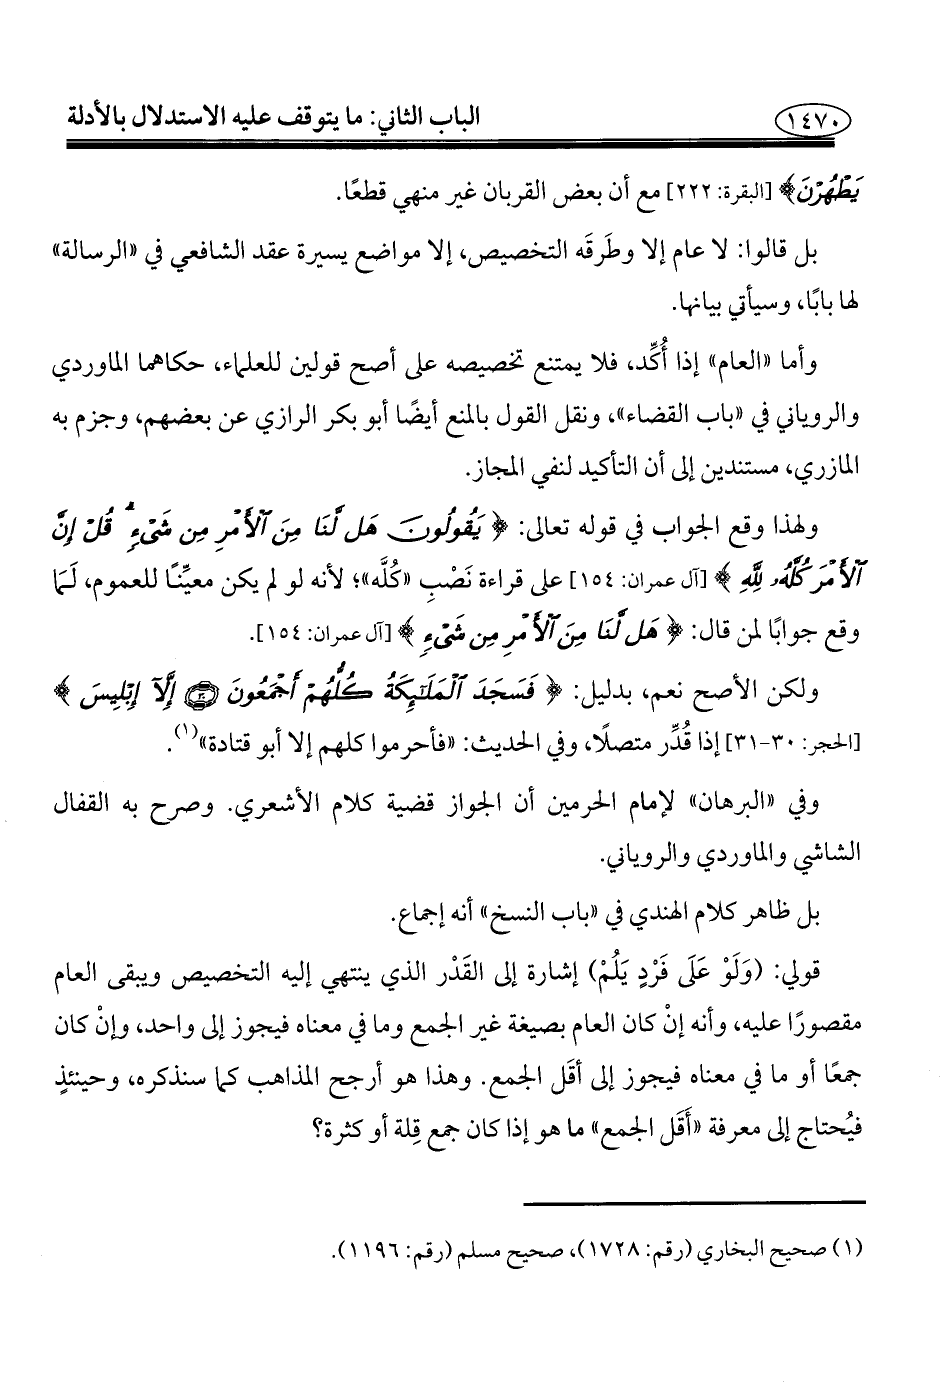 ١٤٧٠ الباب الثاني: ما يتوقف عليه الاستدلال بالأدلة
يَطْهُرْنَ﴾ [البقرة: ٢٢٢] مع أن بعض القربان غير منهي قطعًا.
بل قالوا: لا عام إلا وطَرقَه التخصيص، إلا مواضع يسيرة عقد الشافعي في «الرسالة»
لها بابًا، وسيأتي بيانها.
وأما «العام» إذا أُكِّد، فلا يمتنع تخصيصه على أصح قولين للعلماء، حكاهما الماوردي
والروياني في «باب القضاء»، ونقل القول بالمنع أيضًا أبو بكر الرازي عن بعضهم، وجزم به
المازري، مستندين إلى أن التأكيد لنفي المجاز.
ولهذا وقع الجواب في قوله تعالى: ﴿ يَقُولُونَ هَل لَّنَا مِنَ ٱلْأَمْرِ مِن شَىْءٍ ۗ قُلْ إِنَّ
ٱلْأَمْرَ كُلَّهُۥ لِلَّهِ ﴾ [آل عمران: ١٥٤] على قراءة نَصْبِ «كُلَّه»؛ لأنه لو لم يكن معيِّنًا للعموم، لَمَا
وقع جوابًا لمن قال: ﴿ هَل لَّنَا مِنَ ٱلْأَمْرِ مِن شَىْءٍ ﴾ [آل عمران: ١٥٤].
ولكن الأصح نعم، بدليل: ﴿ فَسَجَدَ ٱلْمَلَٰٓئِكَةُ كُلُّهُمْ أَجْمَعُونَ ٣٠ إِلَّآ إِبْلِيسَ ﴾
[الحجر: ٣٠-٣١] إذا قُدِّر متصلًا، وفي الحديث: «فأحرموا كلهم إلا أبو قتادة»(١).
وفي «البرهان» لإمام الحرمين أن الجواز قضية كلام الأشعري. وصرح به القفال
الشاشي والماوردي والروياني.
بل ظاهر كلام الهندي في «باب النسخ» أنه إجماع.
قولي: (وَلَوْ عَلَى فَرْدٍ يَلُمْ) إشارة إلى القَدْر الذي ينتهي إليه التخصيص ويبقى العام
مقصورًا عليه، وأنه إنْ كان العام بصيغة غير الجمع وما في معناه فيجوز إلى واحد، وإنْ كان
جمعًا أو ما في معناه فيجوز إلى أقَل الجمع. وهذا هو أرجح المذاهب كما سنذكره، وحينئذٍ
فيُحتاج إلى معرفة «أَقَل الجمع» ما هو إذا كان جمع قِلة أو كثرة؟
(١) صحيح البخاري (رقم: ١٧٢٨)، صحيح مسلم (رقم: ١١٩٦).